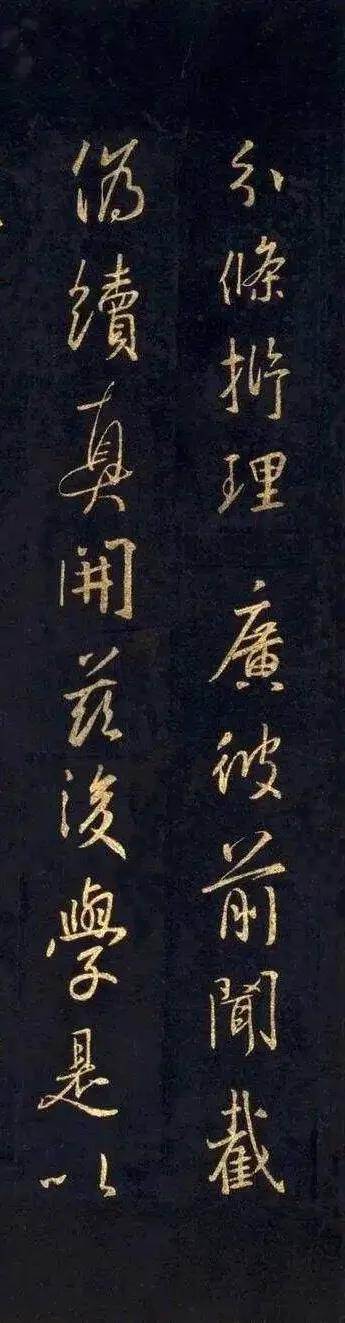 分條析理廣彼前聞截
偽續真開茲後學是以